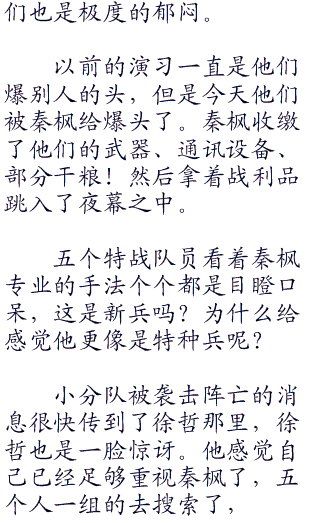 们也是极度的郁闷。
以前的演习一直是他们
爆别人的头，但是今天他们
被秦枫给爆头了。秦枫收缴
了他们的武器、通讯设备、
部分干粮！然后拿着战利品
跳入了夜幕之中。
五个特战队员看着秦枫
专业的手法个个都是目瞪口
呆，这是新兵吗？为什么给
感觉他更像是特种兵呢？
小分队被袭击阵亡的消
息很快传到了徐哲那里，徐
哲也是一脸惊讶。他感觉自
己已经足够重视秦枫了，五
个人一组的去搜索了，